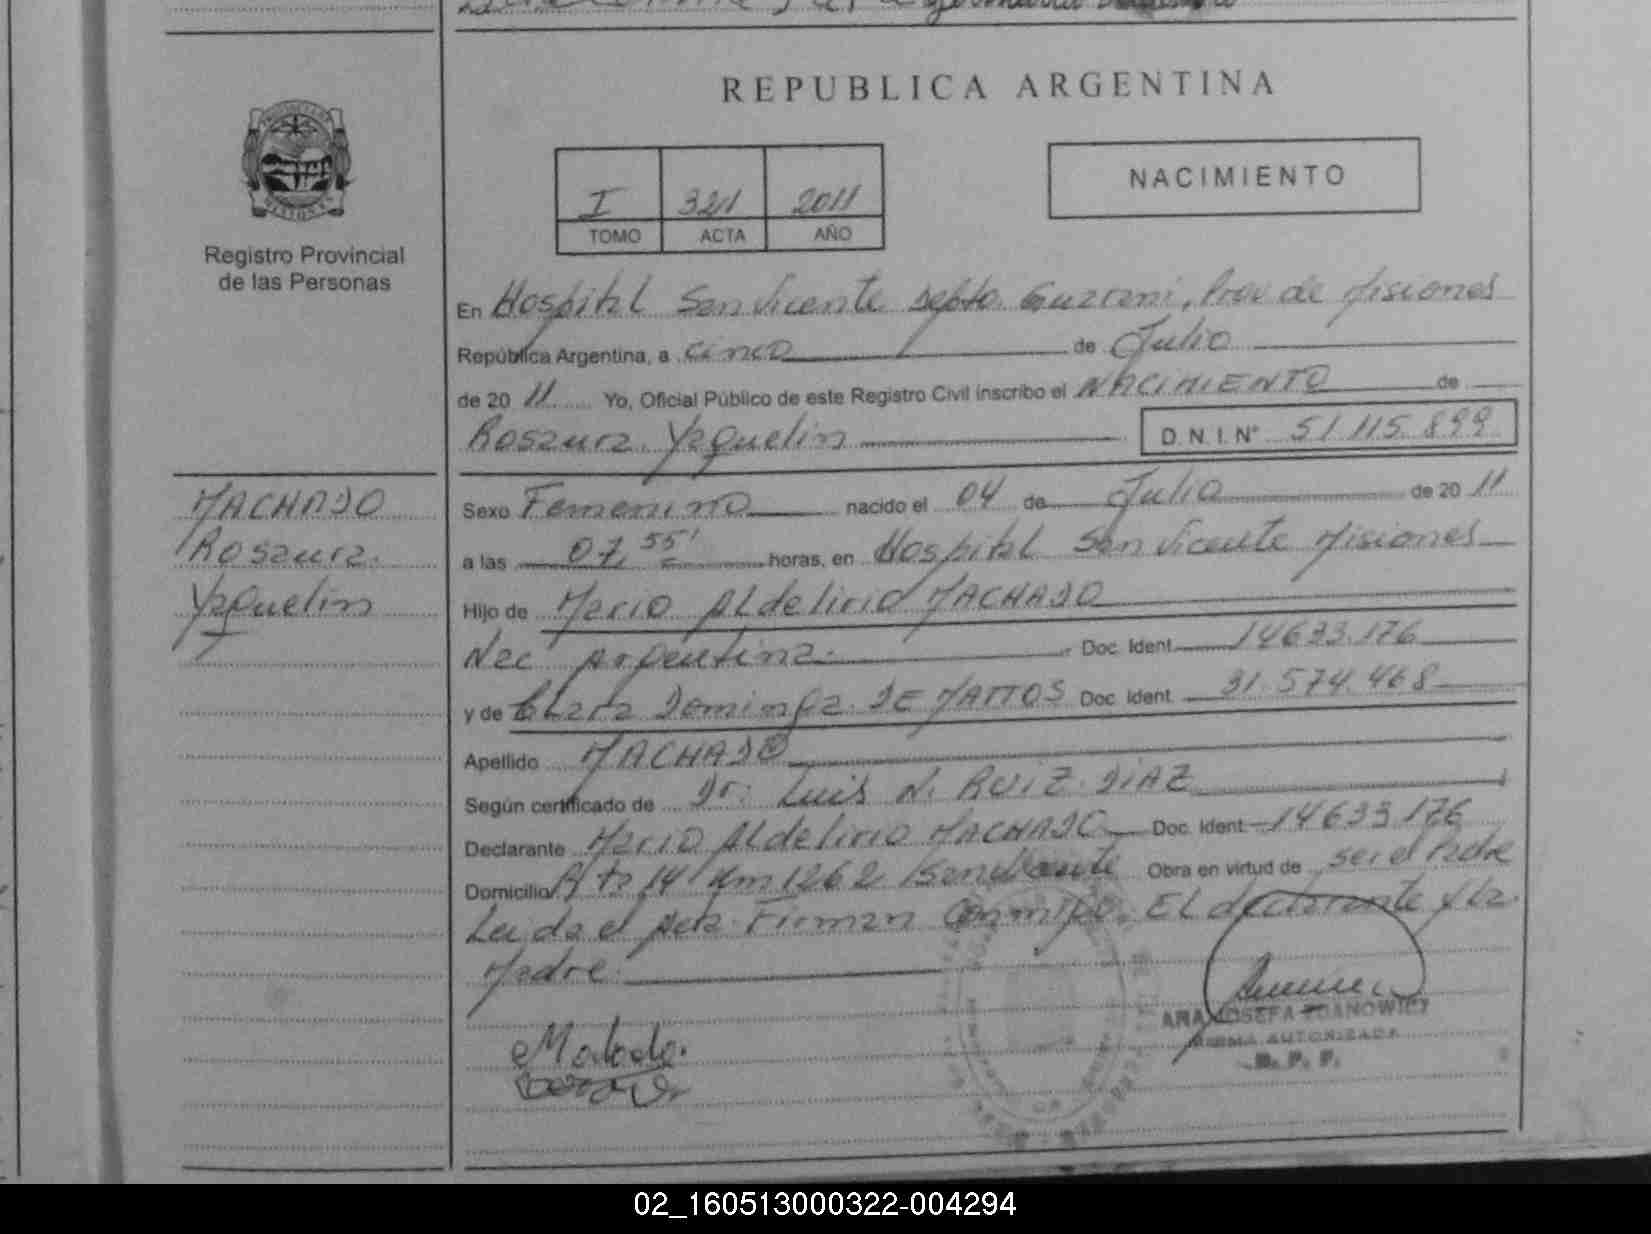 REPUBLICA ARGENTINA
PROVINCIA DE
MISIONES
Registro Provincial
de las Personas
I 321 2011
TOMO ACTA AÑO
NACIMIENTO
En Hospital San Vicente Depto. Guarani, Prov de Misiones
República Argentina, a cinco de Julio
de 2011 Yo, Oficial Público de este Registro Civil inscribo el NACIMIENTO de
Rosaura Yaquelin D.N.I.Nº 51.115.899
MACHADO
Rosaura
Yaquelin
Sexo Femenino nacido el 04 de Julio de 2011
a las 07,55' horas, en Hospital San Vicente Misiones
Hijo de Mario Aldelirio MACHADO
Nac Argentina. Doc. Ident. 14633.176
y de Clara Dominga DE MATTOS Doc. Ident. 31.574.468
Apellido MACHADO
Según certificado de Dr. Luis N. RUIZ DIAZ
Declarante Mario Aldelirio MACHADO Doc. Ident. 14633.176
Domicilio Rta 14 Km 1262 San Vicente Obra en virtud de ser el Padre
Leida el Acta Firman Conmigo. El declarante y La
Madre.
ANA JOSEFA ZDANOWICZ
FIRMA AUTORIZADA
R. P. P.
02_160513000322-004294